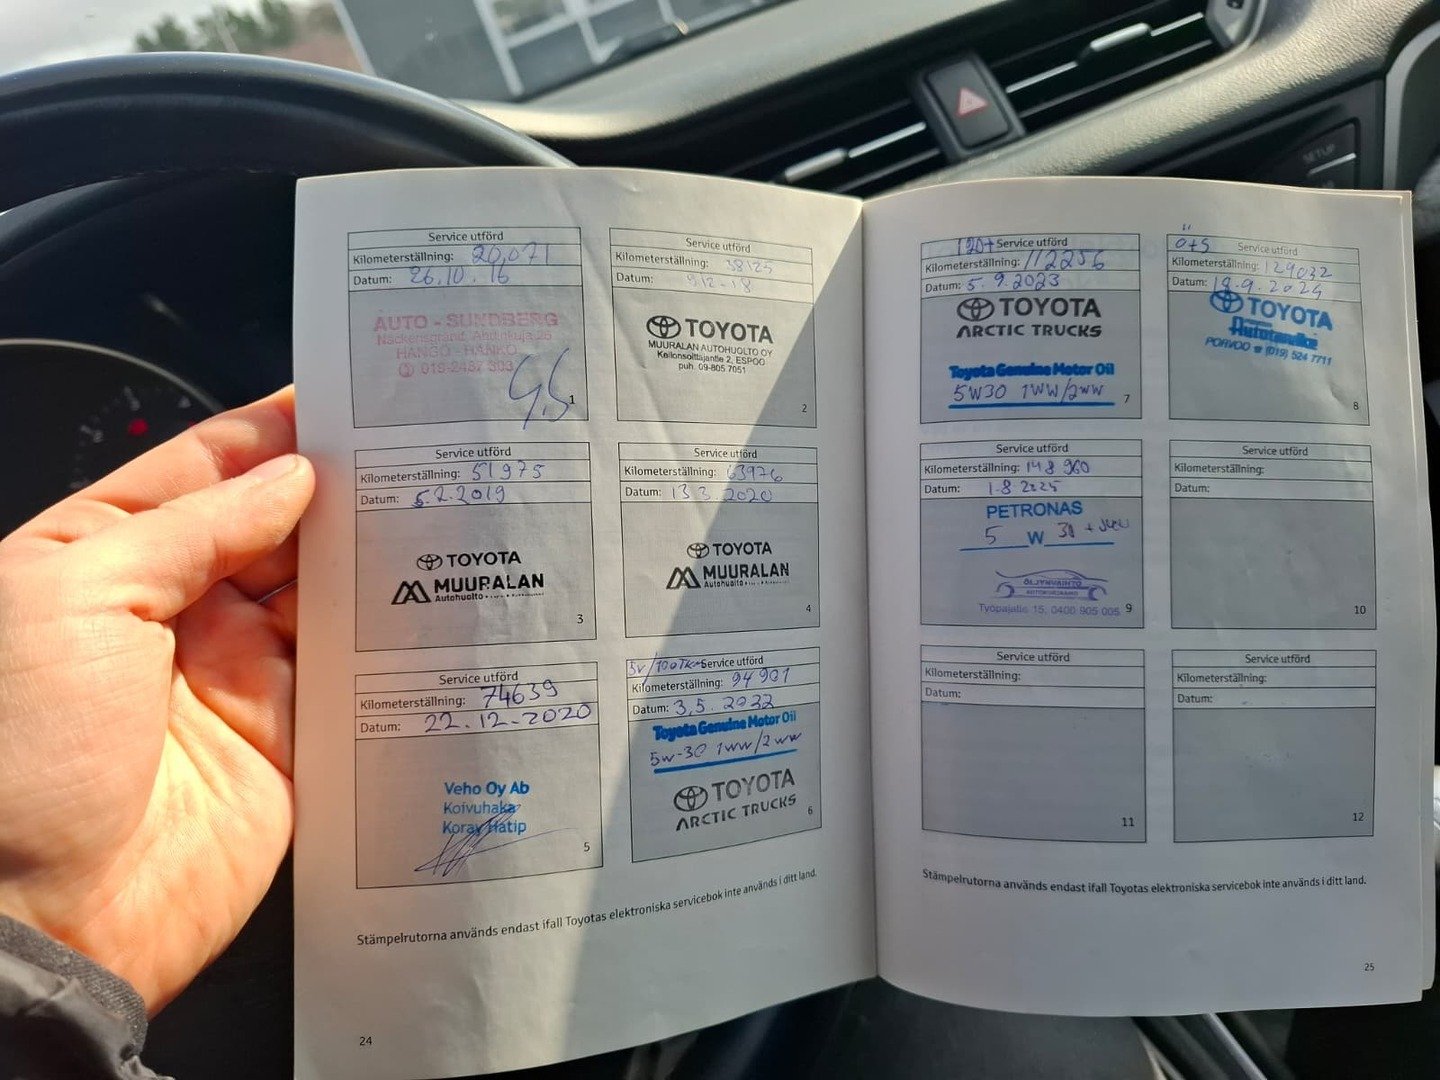 SETUP
Service utförd
Kilometerställning: 20,071
Datum: 26.10.16
AUTO - SUNDBERG
HANGÖ - HANKO
019-2487 303
1
Service utförd
Kilometerställning: 38125
Datum: 5.12-18
TOYOTA
MUURALAN AUTOHUOLTO OY
Keilonsoittajantie 2, ESPOO
puh. 09-805 7051
2
Service utförd
Kilometerställning: 51975
Datum: 5.2.2019
TOYOTA
MUURALAN
Autohuolto
3
Service utförd
Kilometerställning: 63976
Datum: 13 3. 2020
TOYOTA
MUURALAN
Autohuolto
4
Service utförd
Kilometerställning: 74639
Datum: 22.12-2020
Veho Oy Ab
Koivuhaka
Koray Hatip
5
5v/100tkm Service utförd
Kilometerställning: 94901
Datum: 3.5.2022
Toyota Genuine Motor Oil
5w-30 1ww/2ww
TOYOTA
ARCTIC TRUCKS
6
Stämpelrutorna används endast ifall Toyotas elektroniska servicebok inte används i ditt land.
24
120t Service utförd
Kilometerställning: 112256
Datum: 5.9.2023
TOYOTA
ARCTIC TRUCKS
Toyota Genuine Motor Oil
5W30 1WW/2WW
7
Ö+S Service utförd
Kilometerställning: 129032
Datum: 19.9.2024
TOYOTA
Autotalvike
PORVOO ☎ (019) 524 7711
8
Service utförd
Kilometerställning: 148 960
Datum: 1.8 2025
PETRONAS
5 W 30
ÖLJYNVAIHTO
Työpajatie 15, 0400 905 005
9
Service utförd
Kilometerställning:
Datum:
10
Service utförd
Kilometerställning:
Datum:
11
Service utförd
Kilometerställning:
Datum:
12
Stämpelrutorna används endast ifall Toyotas elektroniska servicebok inte används i ditt land.
25